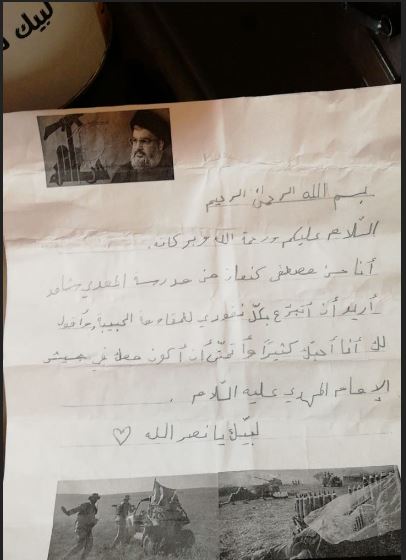 لبيك
حزب الله
بسم الله الرحمن الرحيم
السّلام عليكم ورحمة الله وبركاته.
أنا حسن مصطفى كنعان من مدرسة المهدي شاهد
أريد أن أتبرّع بكلّ نقودي للمقاومة الحبيبة، وأقول
لك أنا أحبّك كثيرًا وأتمنّى أن أكون معك في جيش
الإمام المهدي عليه السّلام .
لبّيك يا نصرالله ♡